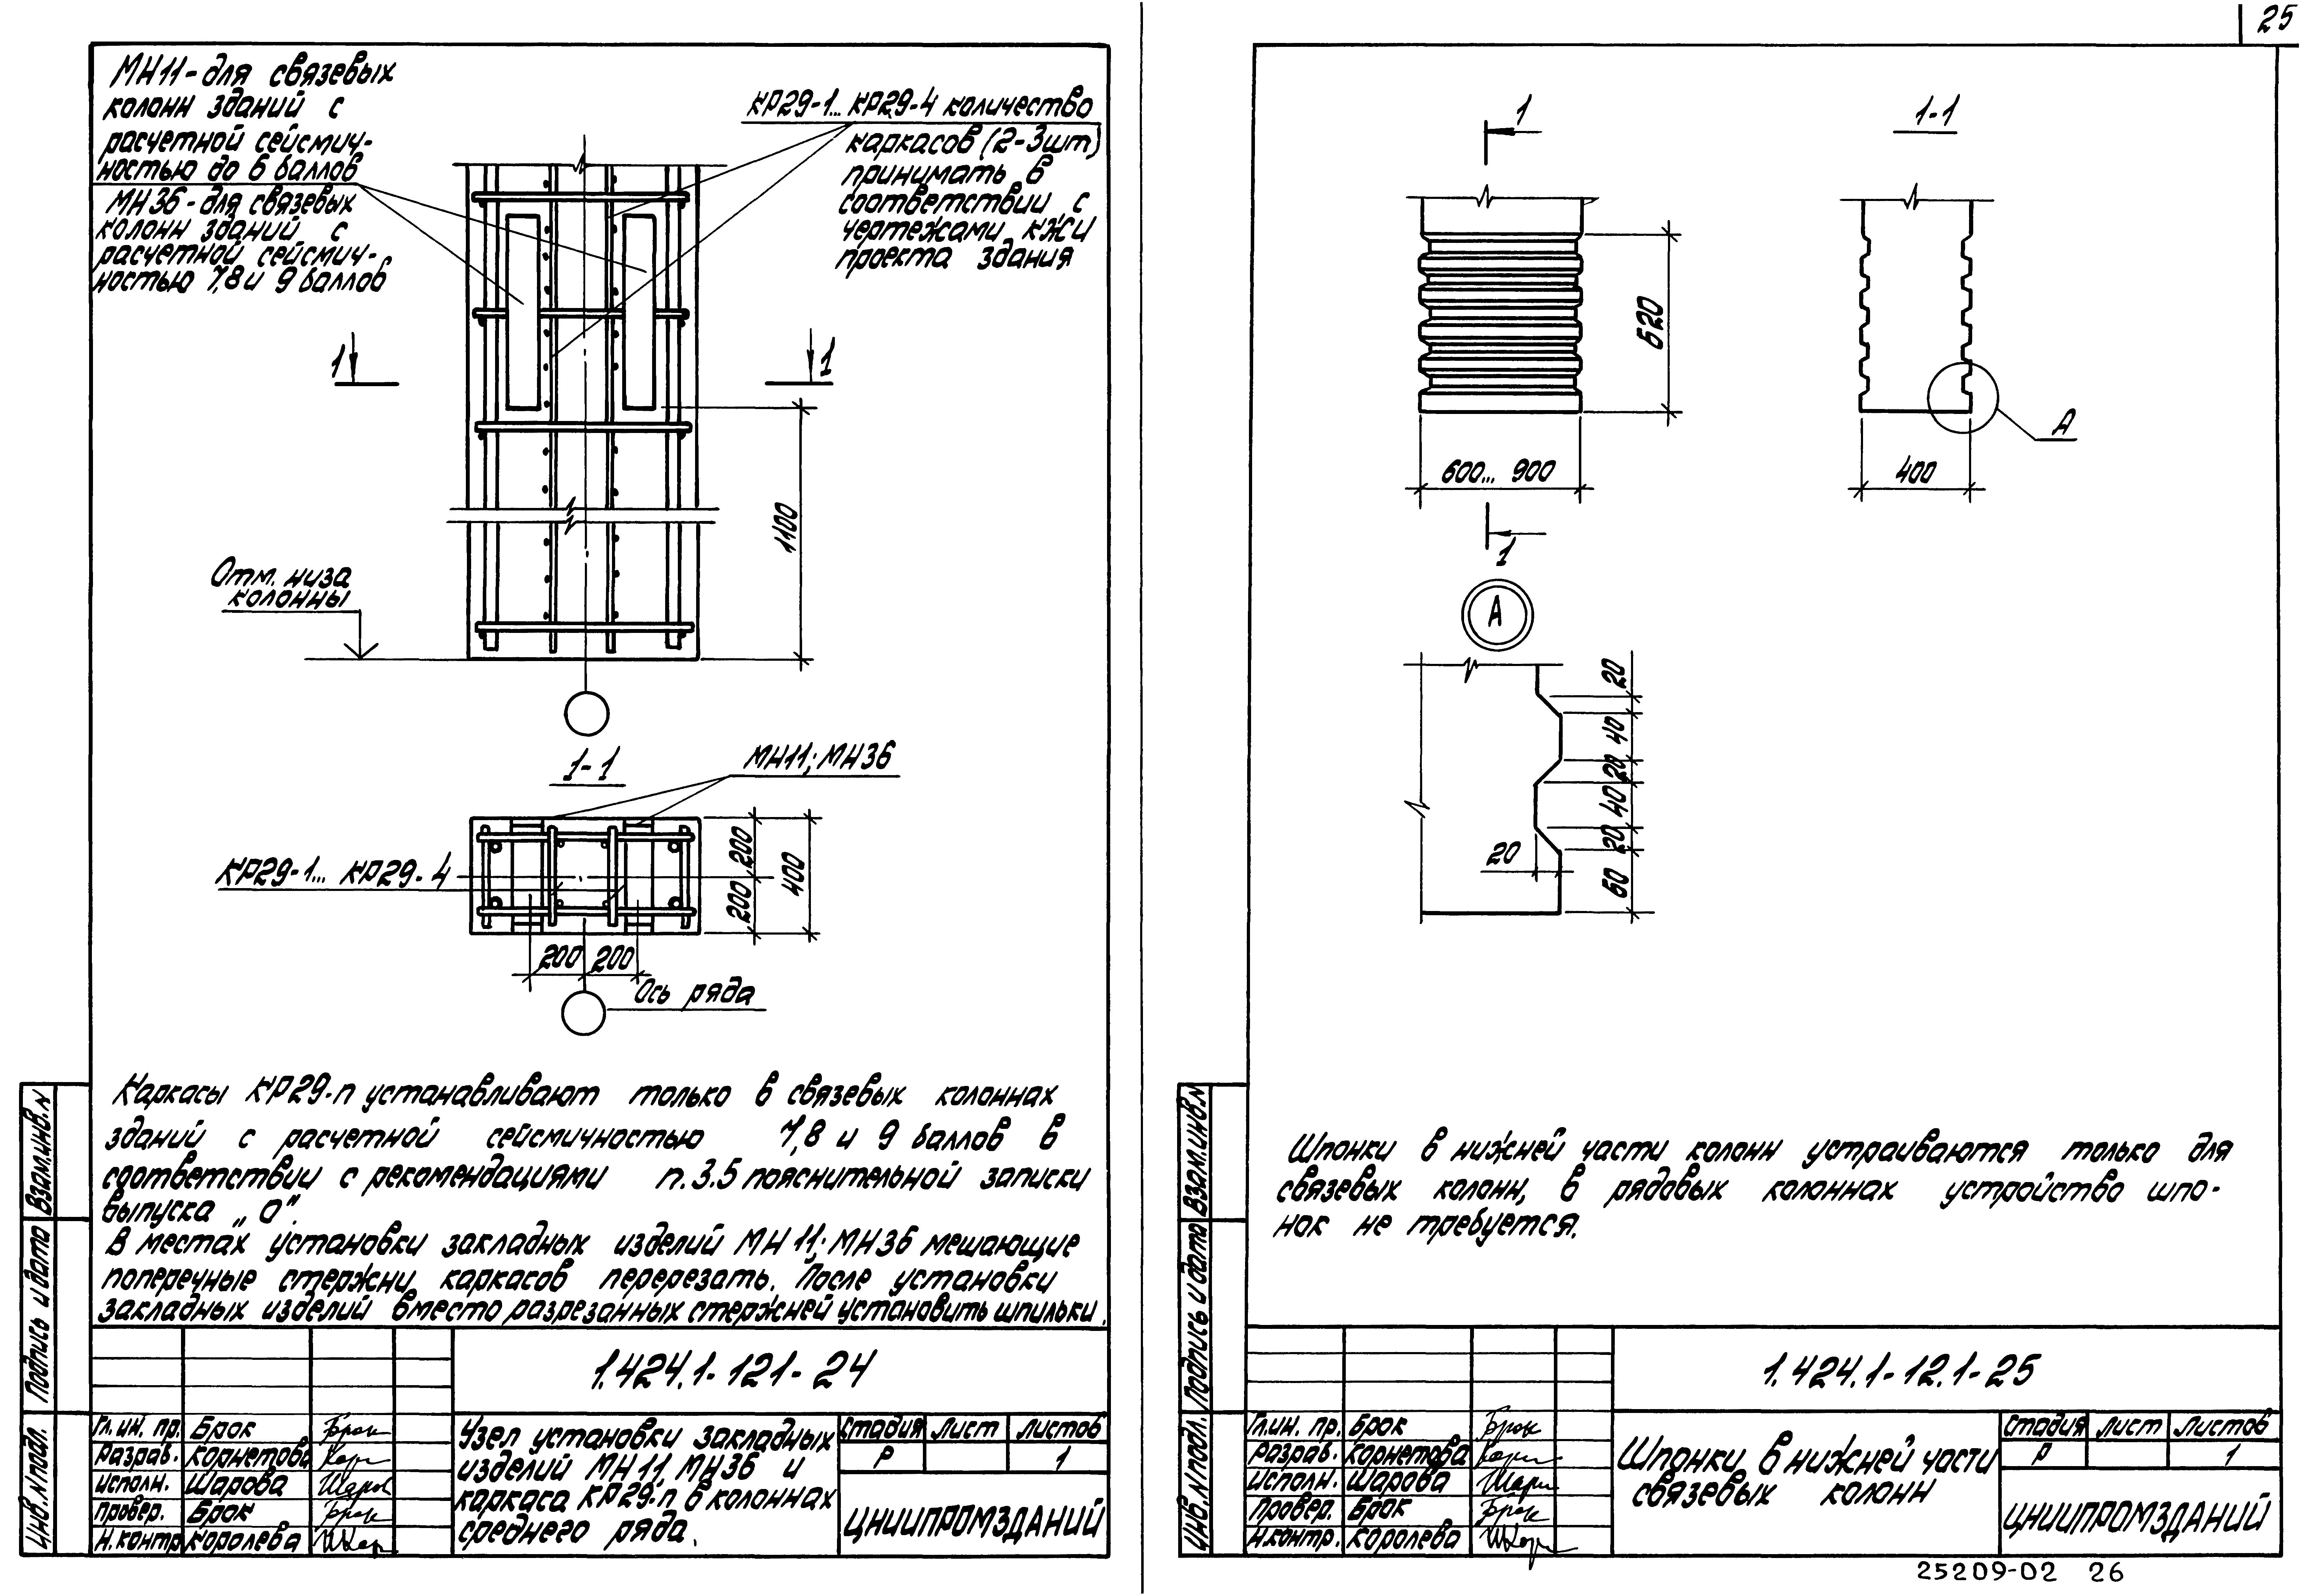 25
МН11-для связевых
колонн зданий с
расчетной сейсмич-
ностью до 6 баллов
МН36-для связевых
колонн зданий с
расчетной сейсмич-
ностью 7,8 и 9 баллов
КР29-1... КР29-4 количество
каркасов (2-3шт)
принимать в
соответствии с
чертежами КЖИ
проекта здания
1
1
1100
Отм. низа
колонны
1-1
МН11; МН36
КР29-1... КР29-4
200
200
400
200
200
Ось ряда
Каркасы КР29-п устанавливают только в связевых колоннах
зданий с расчетной сейсмичностью 7,8 и 9 баллов в
соответствии с рекомендациями п.3.5 пояснительной записки
выпуска „0".
В местах установки закладных изделий МН11; МН36 мешающие
поперечные стержни каркасов перерезать. После установки
закладных изделий вместо разрезанных стержней установить шпильки.
Взам.инв.N
Подпись и дата
Инв.N подл.
1.424.1-121-24
Гл.ин. пр. Брок
Разраб. Корнетова
Исполн. Шарова
Провер. Брок
Н.контр Королева
Узел установки закладных
изделий МН11, МН36 и
каркаса КР29-п в колоннах
среднего ряда.
Стадия Лист Листов
Р 1
ЦНИИПРОМЗДАНИЙ
1
1-1
520
600... 900
1
400
А
А
20
40
20
40
20
60
20
Шпонки в нижней части колонн устраиваются только для
связевых колонн, в рядовых колоннах устройство шпо-
нок не требуется.
Взам.инв.N
Подпись и дата
Инв.N подл.
1.424.1-12.1-25
Гл.ин. пр. Брок
Разраб. Корнетова
Исполн. Шарова
Провер. Брок
Н.контр. Королева
Шпонки в нижней части
связевых колонн
Стадия Лист Листов
Р 1
ЦНИИПРОМЗДАНИЙ
25209-02 26